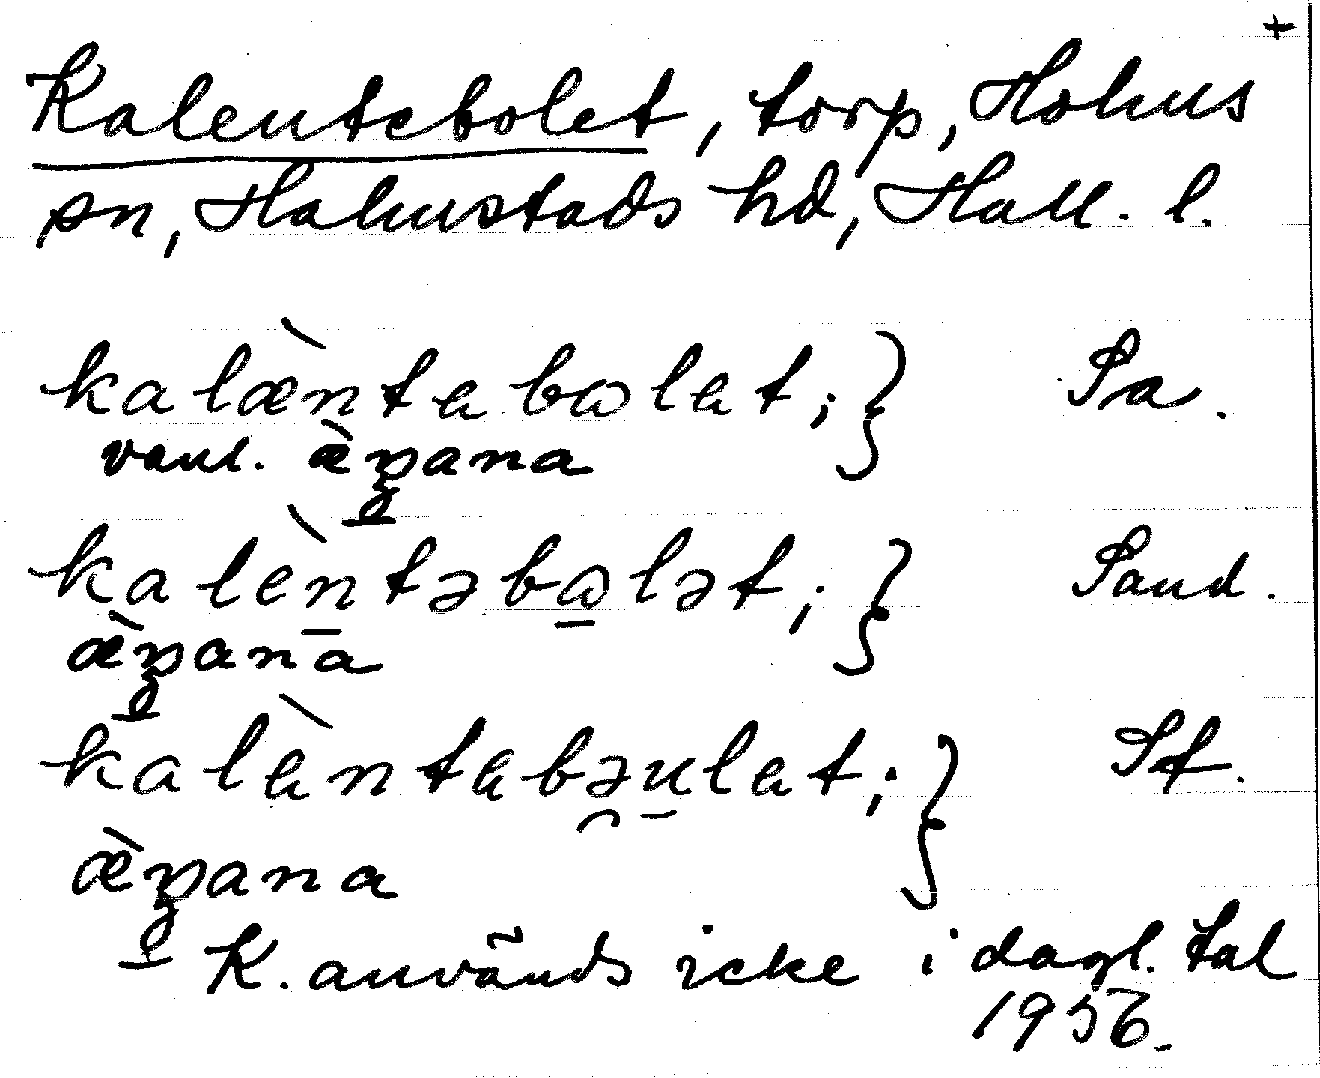 +
Kalentebolet, torp, Holms
sn, Halmstads hd, Hall. l.
kalæ̀ntabωlat; } Sa.
vanl. æ̀ŋana
kalèntəbωlət; } Sand.
æ̀ŋana
kalàntabəulat; } Sf.
æ̀ŋana
K. användes icke i dagl. tal
1956.